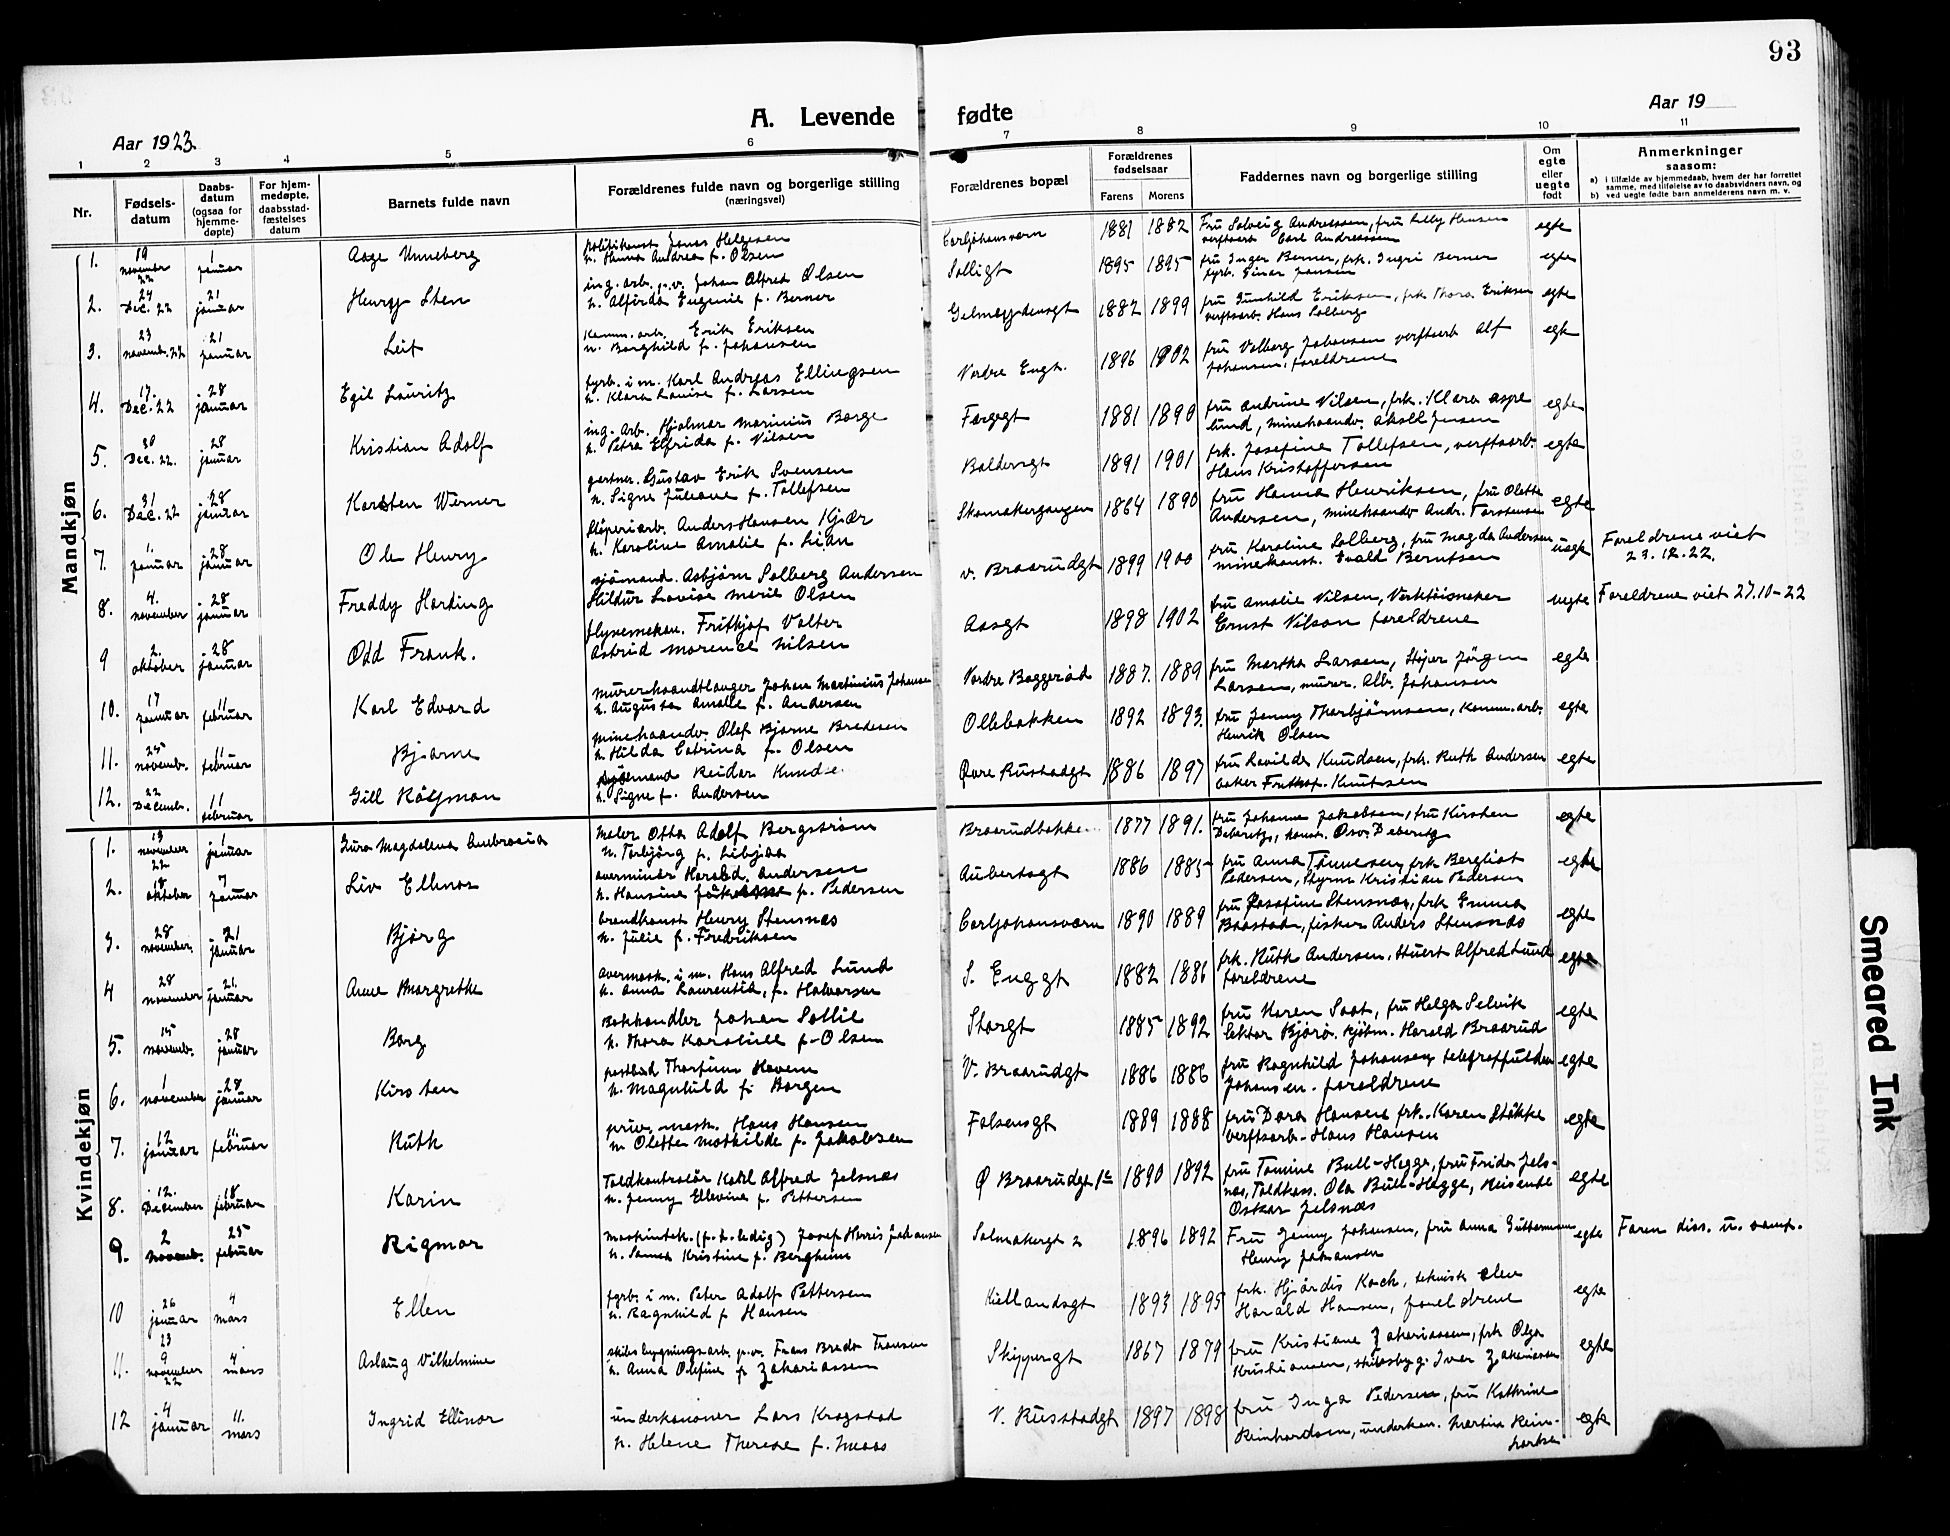 93
A. Levende fødte
Aar 1923.
Aar 19
1 2 3 4 5 6 7 8 9 10 11
Nr.
Fødsels-
datum
Daabs-
datum
(ogsaa for
hjemme-
døpte)
For hjem-
medøpte,
daabsstad-
fæstelses
datum
Barnets fulde navn
Forældrenes fulde navn og borgerlige stilling
(næringsvei)
Forældrenes bopæl
Forældrenes
fødselsaar
Farens Morens
Faddernes navn og borgerlige stilling
Om
egte
eller
uegte
født
Anmerkninger
saasom:
a) i tilfælde av hjemmedaab, hvem der har forrettet
samme, med tilføielse av to daabsvidners navn, og
b) ved uegte fødte barn anmelderens navn m. v.
Mandkjøn
1. 19 november 22 1 januar Aage Unneberg
politikonst Jonas Helgesen
h. Hanna Andrea f. Olsen
Carljohansværn 1881 1882
Fru Solveig Andreassen, fru Lelly Hansen
verftsarb. Carl Andreassen
egte
2. 24 Dec. 22 21 januar Henry Sten
ing. arb. p.v. Johan Alfred Olsen
h. Alfirda Eugenie f. Berner
Solligt 1895 1895
fru Inger Berner, frk. Ingri Berner
fyrb. Einar Jansen
egte
3. 23 novemb. 22 21 januar Leif
Komm. arb. Erik Eriksen
h. Borghild f. Johansen
1882 1899
fru Gunhild Eriksen, frk Thora Eriksen
verftsarb. Hans Solberg
egte
4. 17. Dec. 22 28 januar Egil Lauritz
fyrb. i m. Karl Andreas Ellingsen
h. Klara Louise f. Larsen
Nordre Engt. 1896 1902
fru Valborg Johansen verftsarb Alf
Johansen, foreldrene
egte
5. 30 Dec. 22. 28 januar Kristian Adolf
ing. Arb. Hjalmar Marinius Borge
h. Petra Elfrida f. Nilsen
Fargegt 1881 1890
fru Andrine Nilsen, frk. Klara Aspe
lund, minehaandv. Aksell Jensen
egte
6. 31 Dec. 22 28 januar Karsten Werner
gartner. Gustav Erik Svensen
h. Signe Juliane f. Tollefsen
Baldersgt 1891 1901
frk. Josefine Tollefsen, verftsarb.
Hans Kristoffersen
egte
7. 1. januar 28 januar Ole Henry
Støperiarb. Anders Hansen Kjær
h. Karoline Amalie f. Lian
Skomakergangen 1864 1890
fru Hanna Henriksen, fru Olette
Andersen, minehaandv Andr. Torstensen
egte
8. 4. november 28 januar Freddy Harding
sjømand. Asbjørn Solberg Andersen
Hildur Lovise Marie Olsen
v. Braarudgt 1899 1900
fru Karoline Solberg, fru Magda Andersen
minekonst. Evald Berntsen
uegte
Foreldrene viet
23.12.22.
9 2. oktober 28 januar Odd Frank.
flyvemekan. Fritjof Valter
Astrid Morence Nilsen
Aasgt 1898 1902
fru Amalie Nilsen, Verktøismaker
Ernst Nilson foreldrene
uegte
Foreldrene viet 27.10-22
10. 17 januar 11 februar Karl Edvard
Murerhaandtlanger Johan Martinius Johansen
h. Augusta Amalie f. Andersen
Nordre Baggerød 1887. 1889
fru Martha Larsen, Støper Jørgen
Larsen, murer. Alb. Johansen
egte
11. 25 novemb. 11 februar Bjarne
minehaandv. Olaf Bjarne Bredesen
h. Hilda Catrina f. Olsen
Ollebakken 1892 1893.
fru Jenny Thorbjørnsen, Komm.arb.
Henrik Olsen
egte
12. 22 Decemb. 11 februar Gill Rolfman
sjømand Reidar Kundse.
h. Signe f. Andersen
Øvre Rustadgt 1886 1897
fru Lovilda Knudsen, frk. Ruth Andersen
baker Frithjof. Knutsen
egte
Kvindekjøn
1. 13 november 22 1 januar Gura Magdalena Ambrosia
Maler Otto Adolf Bergstrøm
h. Torbjørg f.
Braarudbakke 1877 1891.
fru Johanne Jakobsen, fru Kirsten
Deberitz, konst. Osv. Deberitz
egte
2. 18 oktober 7 januar Liv Ellinor
overminør Harald. Andersen
h. Hansine f. Pedersen
Aubertsgt 1886 1885
fru Anna Tinnesen, frk Bergliot
Pedersen, Styrm Kristian Pedersen
egte
3. 28 november 21 januar Bjørg
brandkonst Henry Stensnæs
h. Julie f. Fredriksen
Carljohansværn 1890 1889
fru Josefine Stensnæs, frk Emma
Baastad, fisker Anders Stensnæs
egte
4 28 november 21. januar Anne Margrethe
overmask. i m. Hans Alfred Lund
h. Anna Laurentia, f. Halvorsen
S. Enggt 1882 1886
frk. Ruth Andersen, Stuert Alfred Lund
foreldrene
egte
5. 15 novemb. 28 januar Borg
Bokhandler Johan Sollie
h. Thora Karoline f. Olsen
Storgt 1885 1892
fru Maren Saat, fru Helga Selvik
lektor Bjørø. Kjøbm. Harald Braarud
egte
6. 1 november 28 januar Kirsten
postbud Thorfinn Hovem
h. Magnhild f. Borgen
V. Braarudgt 1886 1886
fru Ragnhild Johansen telegraffuldm
Johansen. foreldrene
egte
7. 12 januar 11. februar Ruth
priv. mask. Hans Hansen
m Olette Mathilde f. Jakobsen
Falsensgt 1889 1888
fru Dora Hansen frk. Karen Stökke
verftsarb. Hans Hansen
egte
8. 12. December 18 februar Karin
Toldkontrolør Karl Alfred Jelsnæs
h. Jenny Ellevine f. Pettersen
Ø Braarudgt 1890 1892
fru Tomine Bull-Hegge, fru Frida Jels-
næs, Toldkass. Ola Bull-Hegge, Reisende
Oskar Jelsnæs
egte
9. 2 novemb. 25 februar Rigmor
maskintek. (f.t. ledig) Josef Harris Johansen
h. Samea Kristine f. Bergheim
Salmakergt 2 1896 1892
Fru Jenny Johansen, fru Anna Guttormsen
Henry Johansen
egte
Faren diss. u. samf.
10 26 januar 23 4 mars Ellen
fyrb. i m. Peter Adolf Pettersen
h. Ragnhild f Hansen
Kiellandsgt 1893 1895
frk. Hjørdis Koch, teknisk elev
Harald Hansen, foreldrene
egte
11. 9 november 22 4 mars Aslaug Vilhelmine
skibsbygningsarb. p.v. Frans Bredo Fransen
h. Anna Olefine f Zakariassen
Skippergt 1867 1879
fru Kristiane Zakariassen, frk Olga
Kristiansen, skibsbyg. Iver Zakariassen
egte
12 4 januar 11. mars Ingrid Ellinor
underkanoner Lars Krogstad
h. Helene Therese f. Maas
V. Russtadgt 1897 1898
fru Inga Pedersen, fru Kathrine
Reinhardsen, underkan. Martin Rein-
hartsen
egte
Smeared Ink